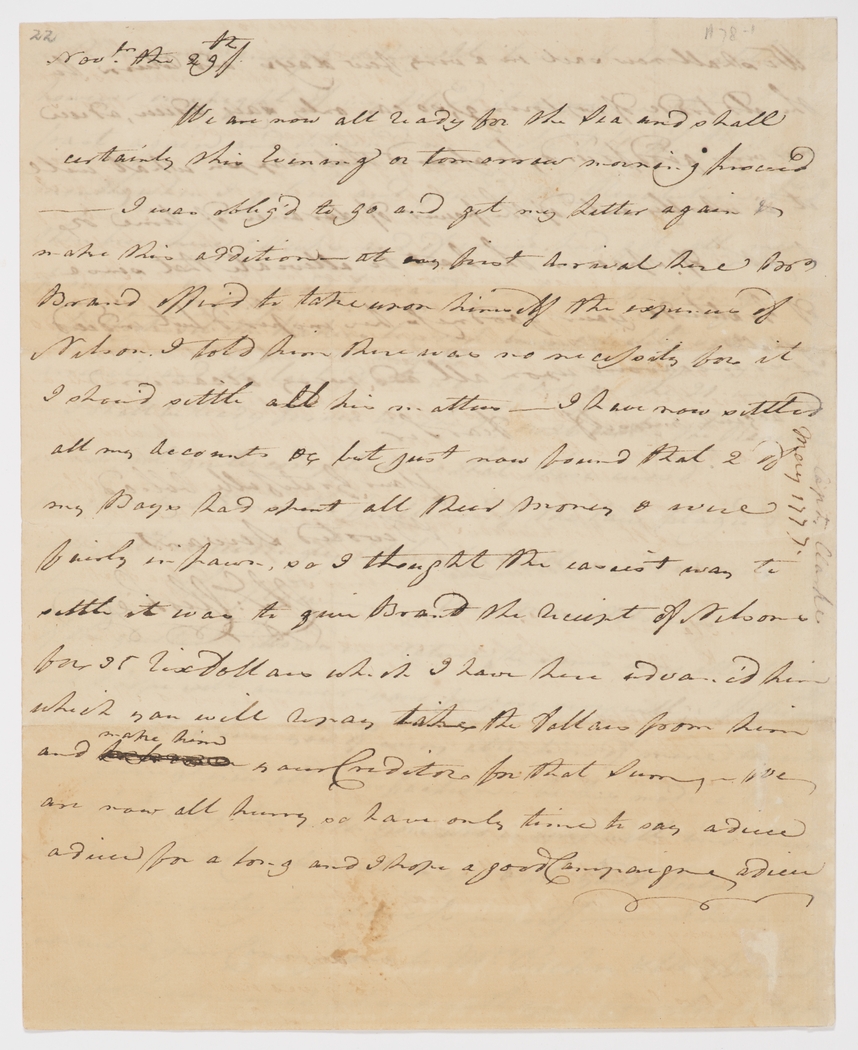 22
Novbr the 29th
We are now all ready for the Sea and shall
certainly this Evening or tomorrow morning proceed
— I was oblig'd to go and get my letter again to
make this addition — at my first arrival here Mr
Brand offer'd to take upon himself the expences of
Nelson. I told him there was no necessity for it
I shou'd settle all his matters — I have now settled
all my accounts &c but just now found that 2 of
my Boys had spent all their money & were
fairly in pawn, so I thought the easiest way to
settle it was to give Brand the receipt of Nelsons
for 35 rixDollars which I have here advanc'd him
which you will repay take the Dollars from him
make him
and your Creditor for that Sum, — We
are now all hurry so have only time to say adieu
adieu for a long and I hope a good Campaigne, adieu
Capt. Clarke
1777.